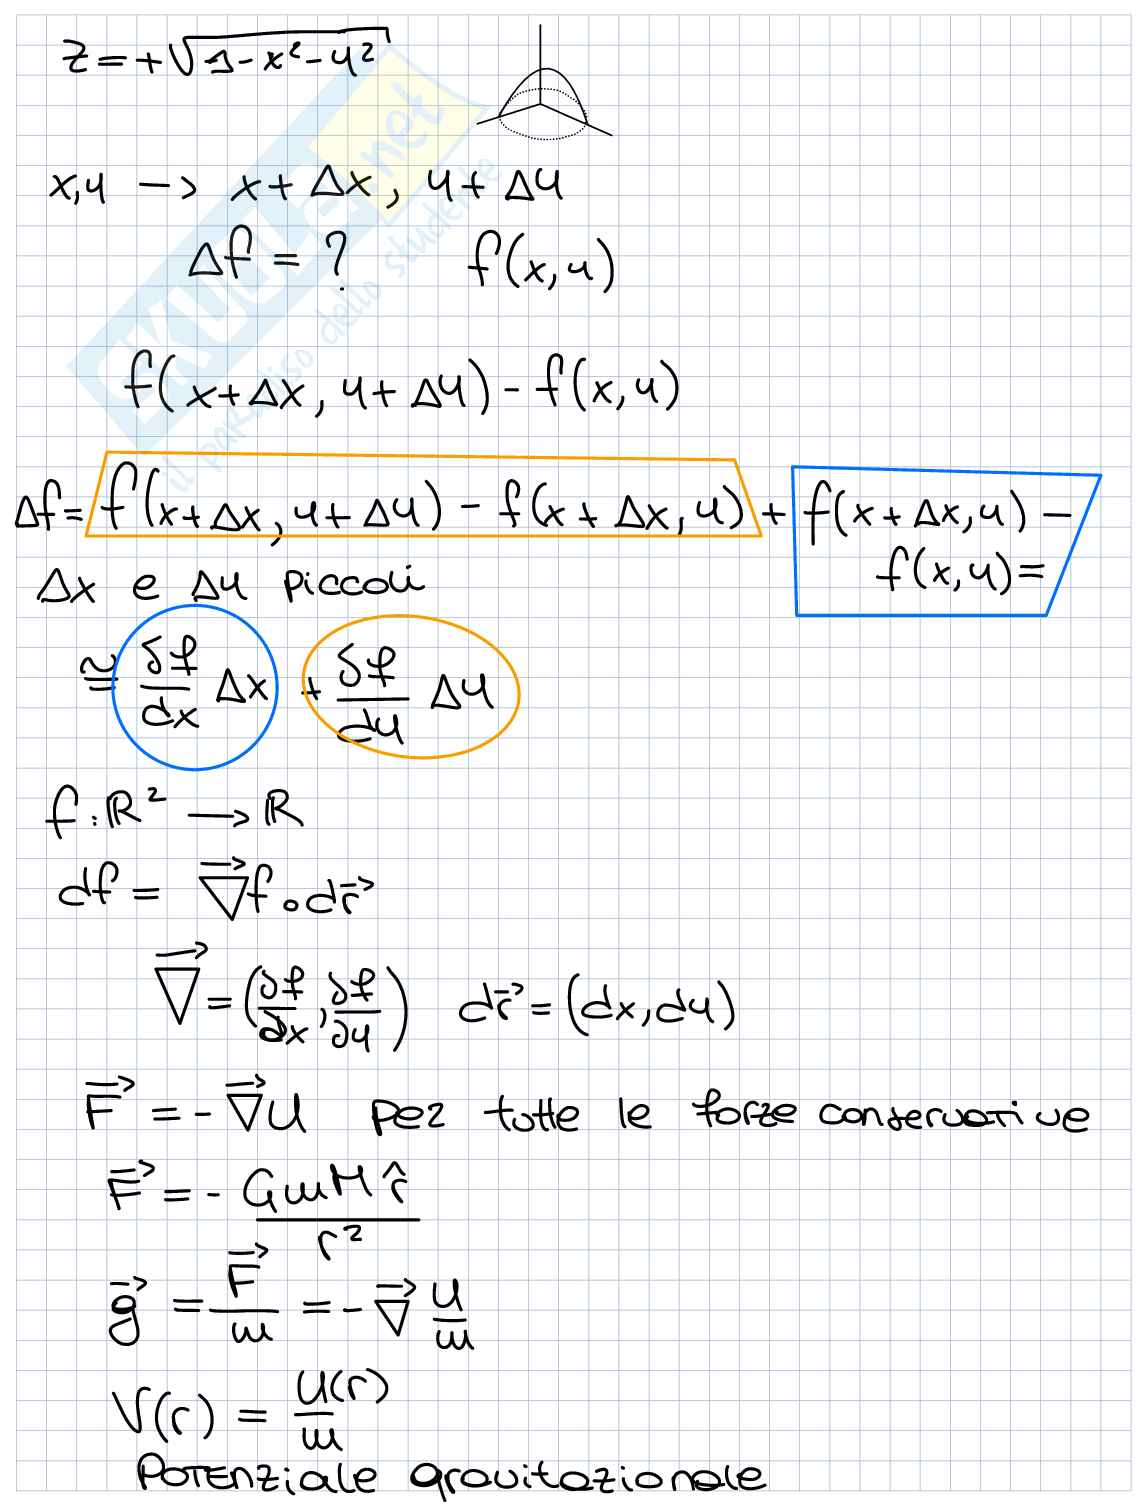 z = +√(1 - x² - y²)
x,y → x + Δx, y + Δy
Δf = ? f(x,y)
f(x+Δx, y+Δy) - f(x,y)
Δf = f(x+Δx, y+Δy) - f(x+Δx, y) + f(x+Δx, y) -
f(x,y) =
Δx e Δy piccoli
≅ δf/dx Δx + δf/dy Δy
f: ℝ² → ℝ
df = ∇⃗f ∘ dr⃗
∇⃗ = (∂f/∂x, ∂f/∂y) dr⃗ = (dx, dy)
F⃗ = - ∇⃗U per tutte le forze conservative
F⃗ = - GmM r̂ / r²
g⃗ = F⃗/m = - ∇⃗ U/m
V(r) = U(r)/m
POTENZIALE gravitazionale
SKUOLA.net
il paradiso dello studente